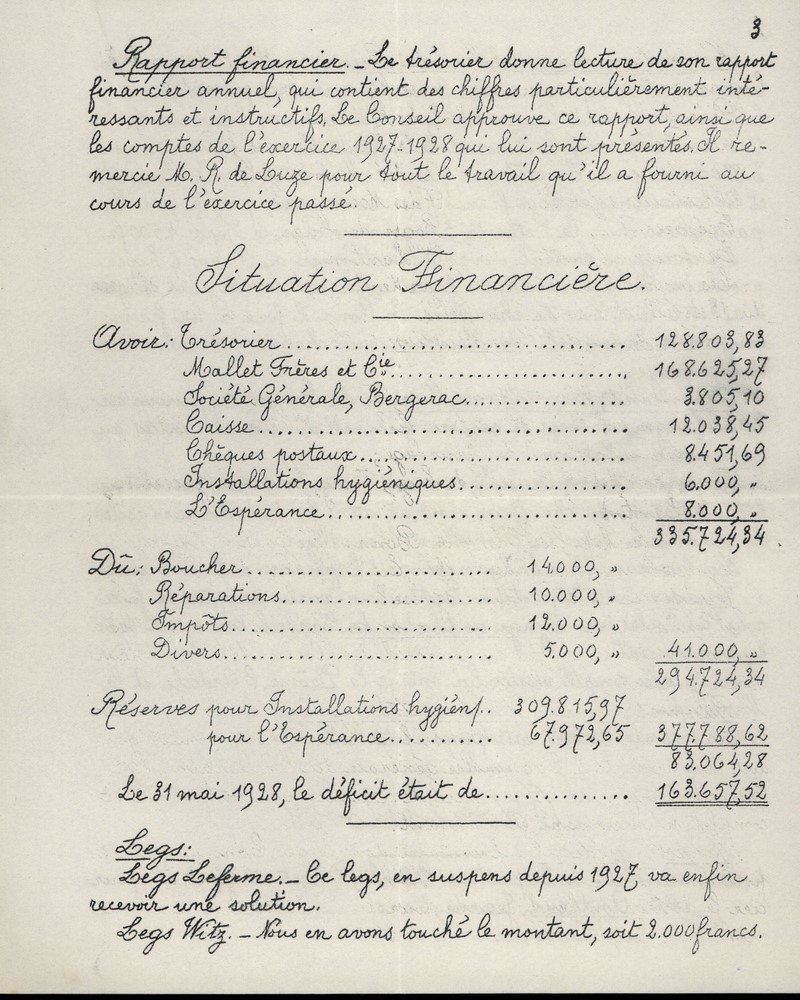 3
Rapport financier. _ Le trésorier donne lecture de son rapport
financier annuel, qui contient des chiffres particulièrement inté-
ressants et instructifs. Le Conseil approuve ce rapport, ainsi que
les comptes de l'exercice 1927-1928 qui lui sont présentés. Il re-
mercie M. R. de Luze pour tout le travail qu'il a fourni au
cours de l'exercice passé.
Situation Financière.
Avoir: Trésorier................................... 128.803,83
Mallet Frères et Cie............................. 168.625,27
Société Générale, Bergerac................. 3.805,10
Caisse......................................... 12.038,45
Chèques postaux............................. 8.451,69
Installations hygiéniques.................. 6.000, "
L'Espérance.................................. 8.000, "
335.724,34
Dû: Boucher........................... 14.000, "
Réparations........................ 10.000, "
Impôts............................. 12.000, "
Divers.............................. 5.000, " 41.000, "
294.724,34
Réserves pour Installations hygién/.. 309.815,97
pour l'Espérance.......... 67.972,65 377.788,62
83.064,28
Le 31 mai 1928, le déficit était de............... 163.657,52
Legs:
Legs Leferme. _ Ce legs, en suspens depuis 1927 va enfin
recevoir une solution.
Legs Witz. _ Nous en avons touché le montant, soit 2.000 francs.